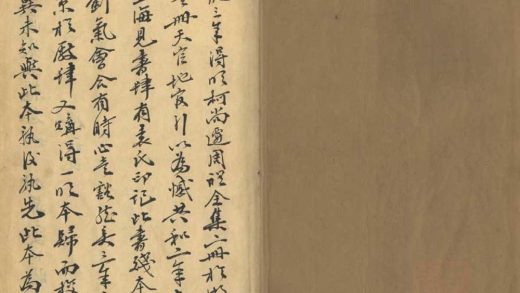 三年得明柯尚遷周禮全集二冊於
全冊天官地官引以為憾共和二年
海見書肆有袁氏印記此書殘本
劍氣會合有時心是豁然矣三年
京於廠肆又購得一明本歸而
異未知與此本孰後孰先此本為